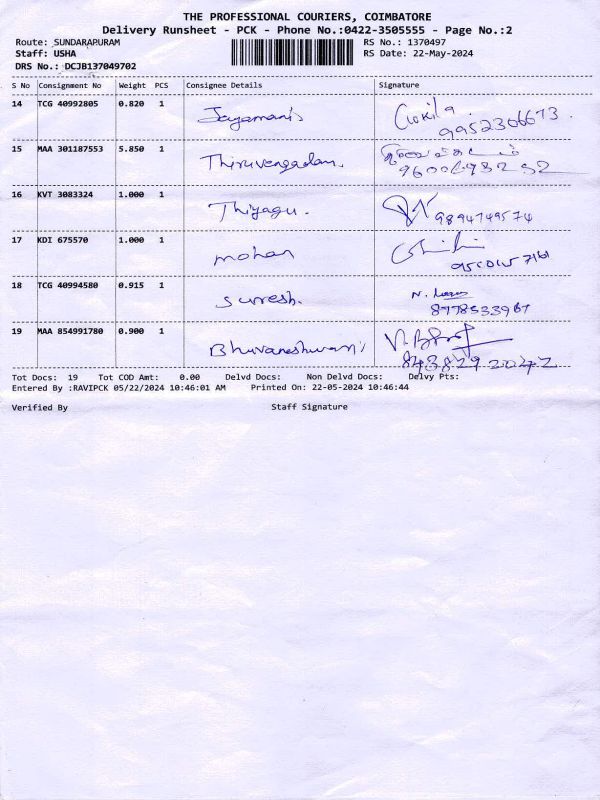 THE PROFESSIONAL COURIERS, COIMBATORE
Delivery Runsheet - PCK - Phone No.:0422-3505555 - Page No.:2
Route: SUNDARAPURAM RS No.: 1370497
Staff: USHA RS Date: 22-May-2024
DRS No.: DCJB137049702
S No Consignment No Weight PCS Consignee Details Signature
14 TCG 40992805 0.820 1 Jayamani Gokila
9952306673.
15 MAA 301187553 5.850 1 Thiruvengadam.
16 KVT 3083324 1.000 1 Thiyagu. 9894749574
17 KDI 675570 1.000 1 mohan
18 TCG 40994580 0.915 1 Suresh.
8778533967
19 MAA 854991780 0.900 1 Bhuvaneshwari
Tot Docs: 19 Tot COD Amt: 0.00 Delvd Docs: Non Delvd Docs: Delvy Pts:
Entered By :RAVIPCK 05/22/2024 10:46:01 AM Printed On: 22-05-2024 10:46:44
Verified By Staff Signature